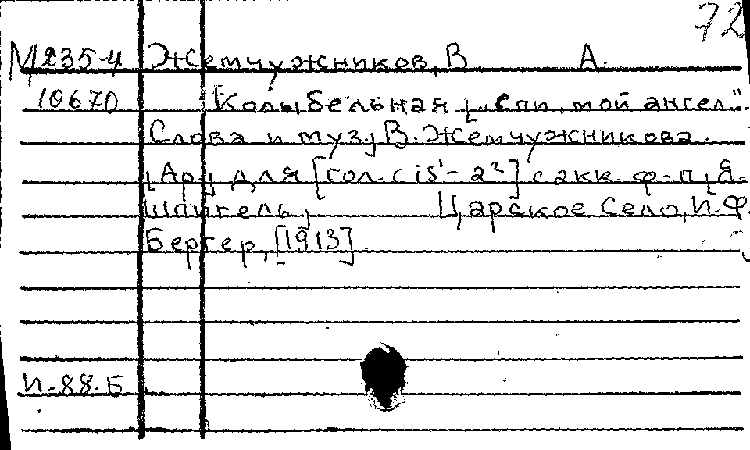 72
М235-4 Жемчужников, В. А.
10670 [Колыбельная „Спи, мой ангел".
Слова и муз. В. Жемчужникова.
Ар. для [гол. cis¹-a²] с акк. ф-п. Я.
Шпигель, Царское Село, И.Ф.
Бергер, [1913]
И-88-Б